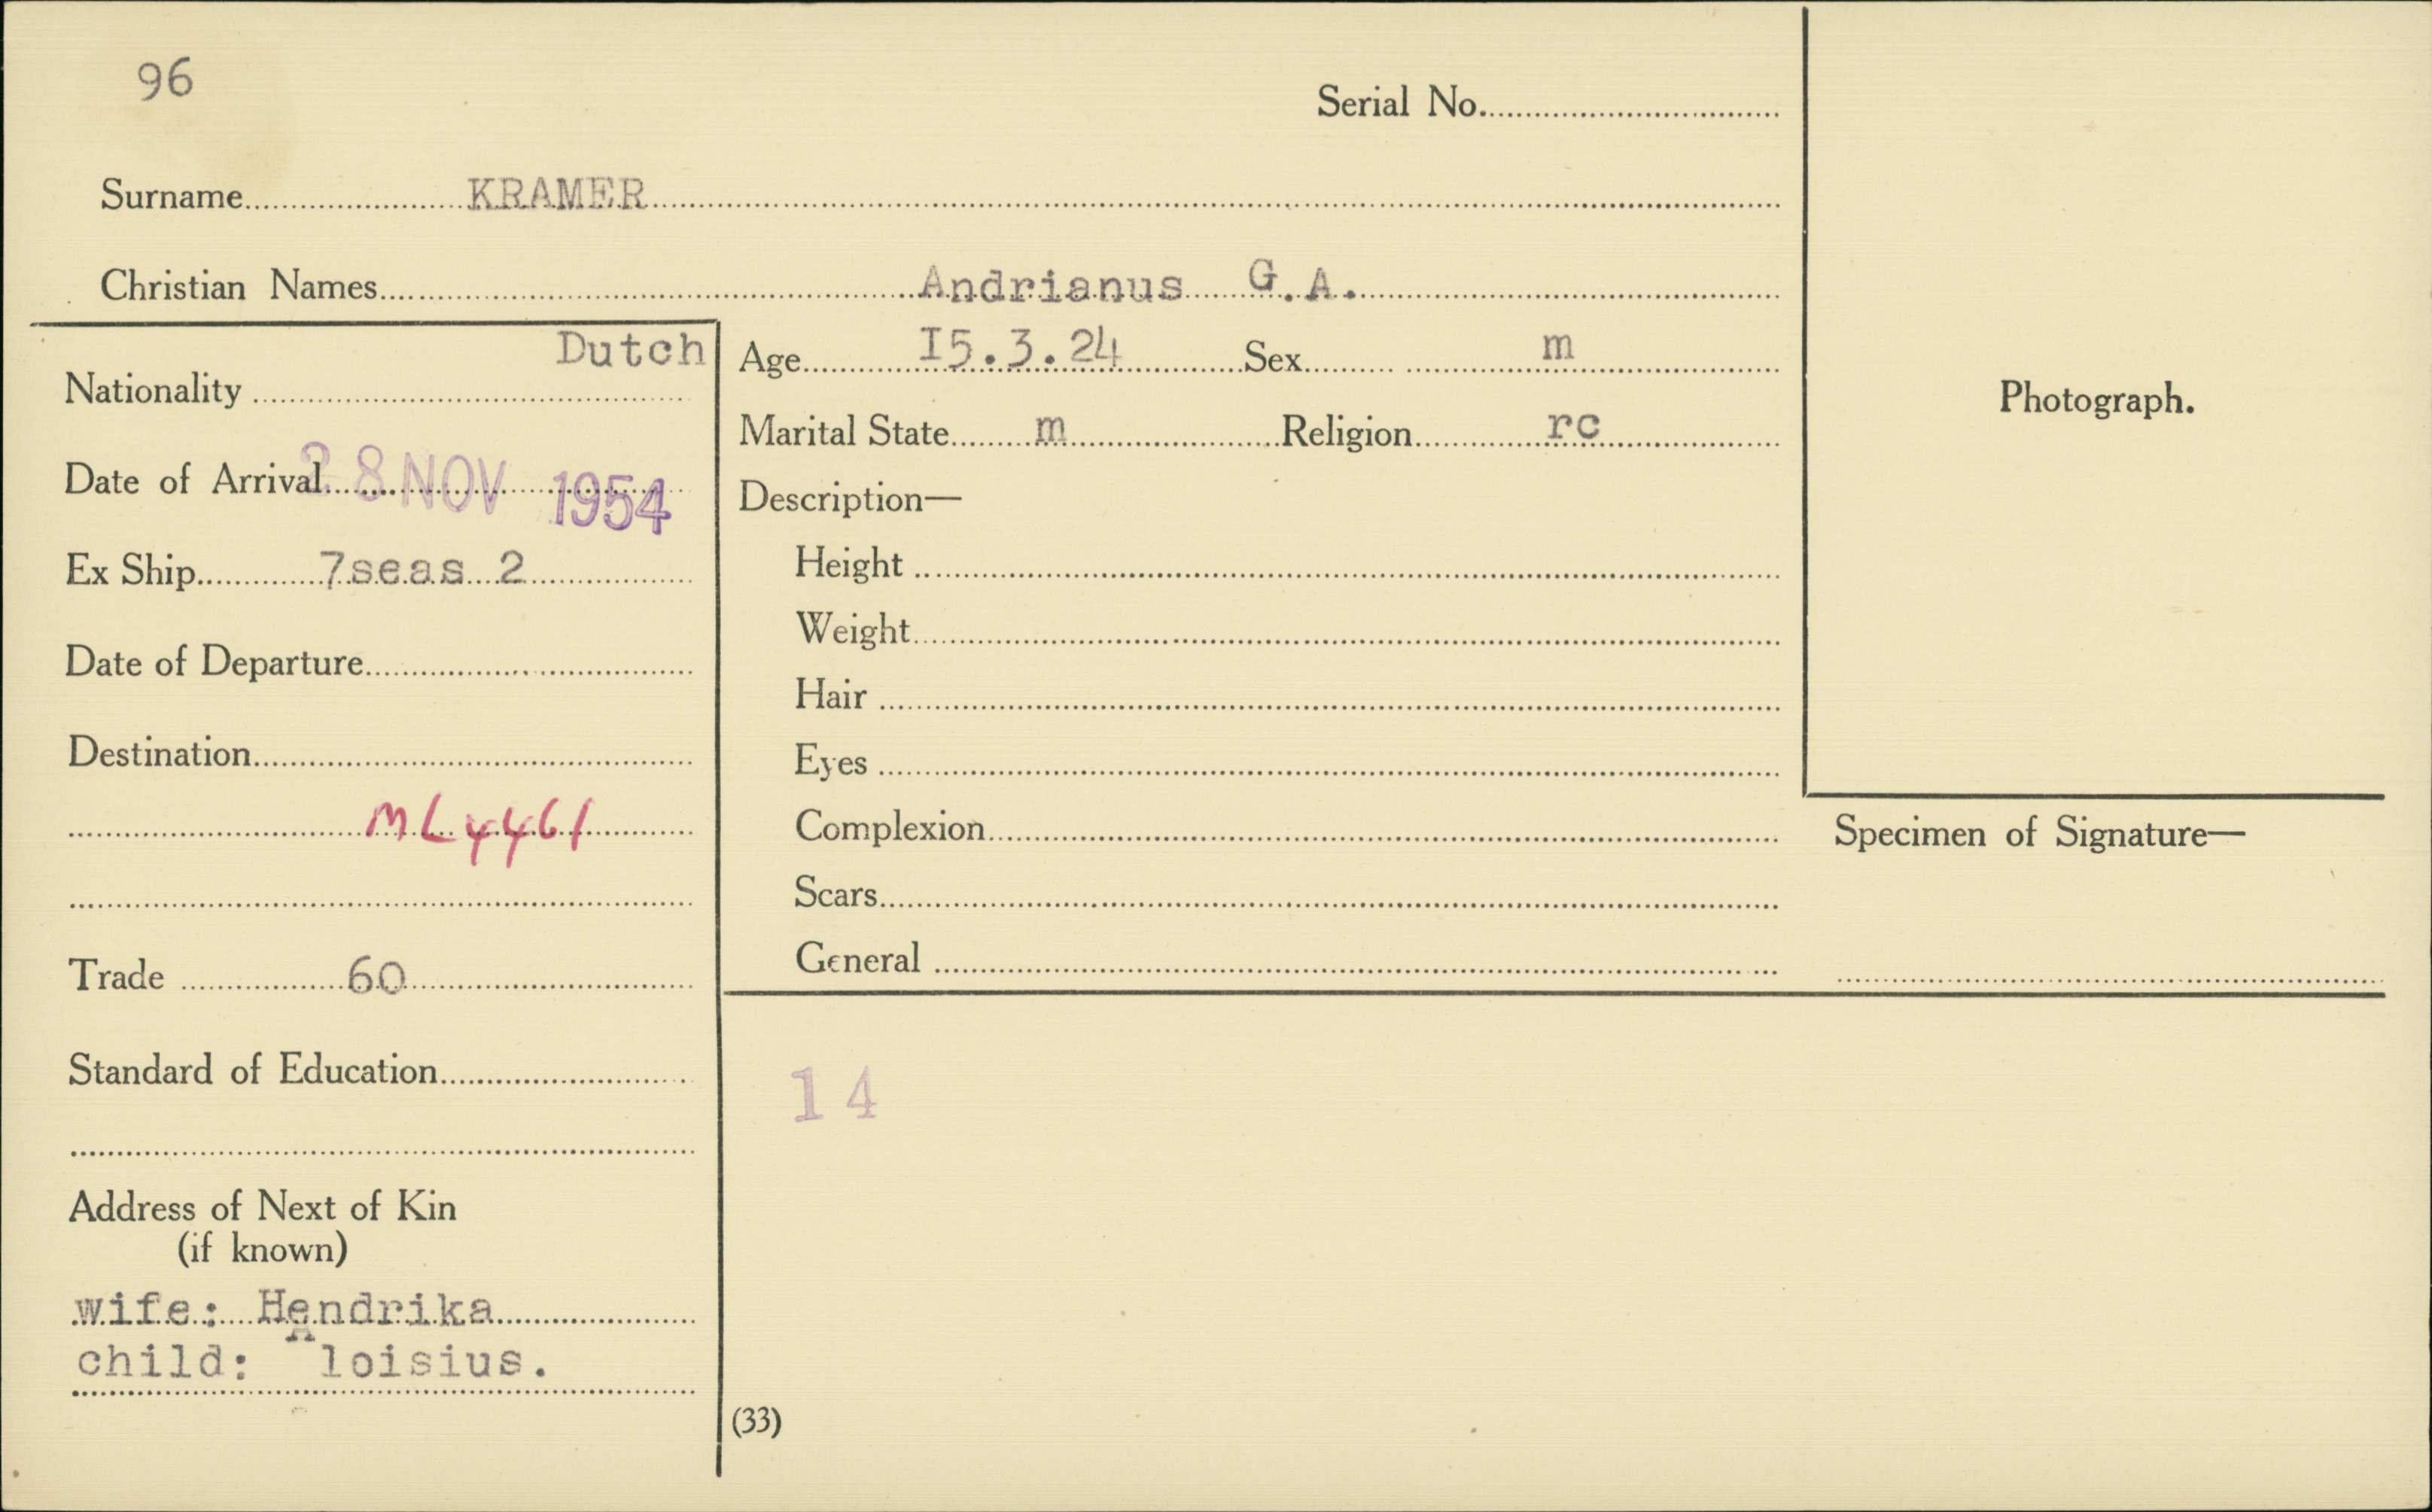 96
Serial No.
Surname KRAMER
Christian Names Andrianus G.A.
Nationality Dutch
Date of Arrival 28 NOV 1954
Ex Ship 7seas 2
Date of Departure
Destination
ML4461
Trade 60
Standard of Education
Address of Next of Kin
(if known)
wife: Hendrika
child: Aloisius.
Age I5.3.24 Sex m
Marital State m Religion rc
Description—
Height
Weight
Hair
Eyes
Complexion
Scars
General
14
(33)
Photograph.
Specimen of Signature—